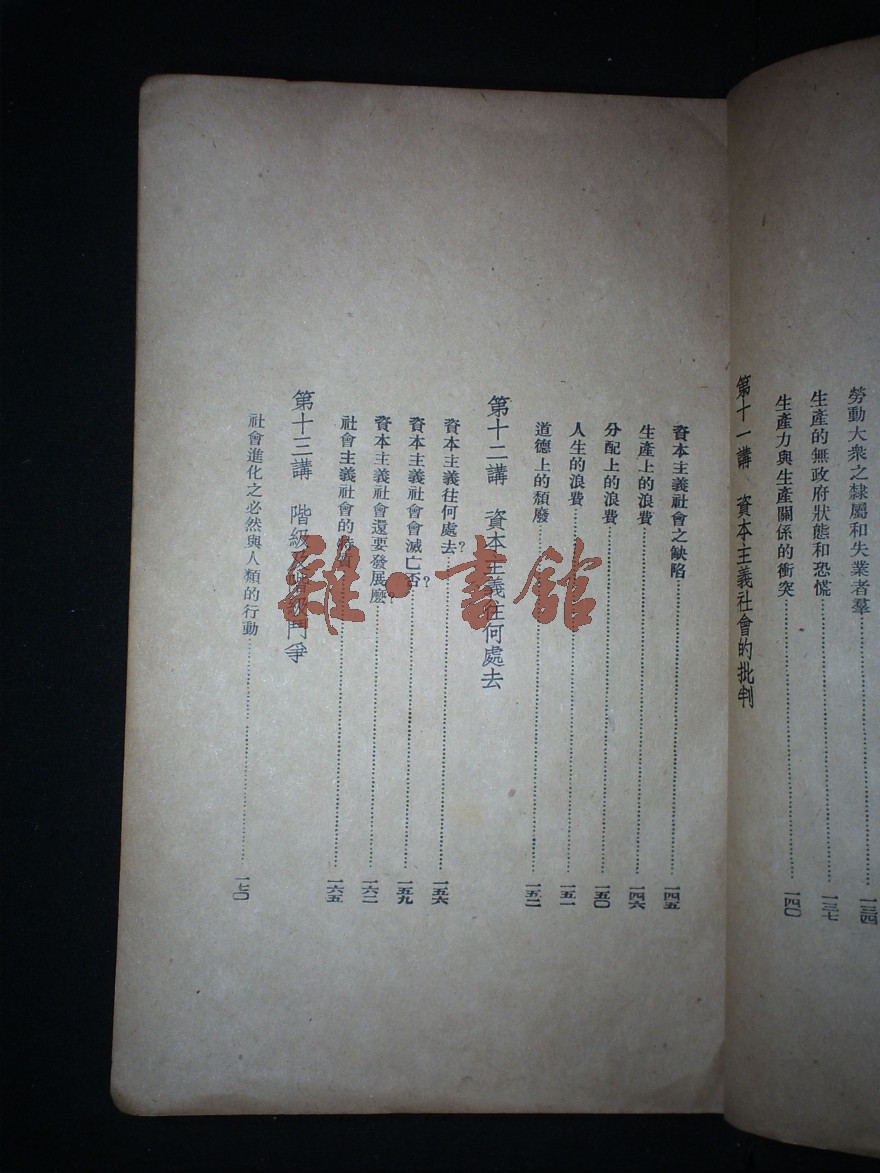 勞動大衆之隸屬和失業者羣……一三四
生產的無政府狀態和恐慌……一三七
生產力與生產關係的衝突……一四〇
第十一講 資本主義社會的批判
資本主義社會之缺陷……一四五
生產上的浪費……一四六
分配上的浪費……一五〇
人生的浪費……一五一
道德上的頹廢……一五二
第十二講 資本主義往何處去
資本主義往何處去?……一五六
資本主義社會會滅亡否?……一五九
資本主義社會還要發展麽?……一六二
社會主義社會的……一六五
第十三講 階級及階級鬥爭
社會進化之必然與人類的行動……一七〇
雜·書館